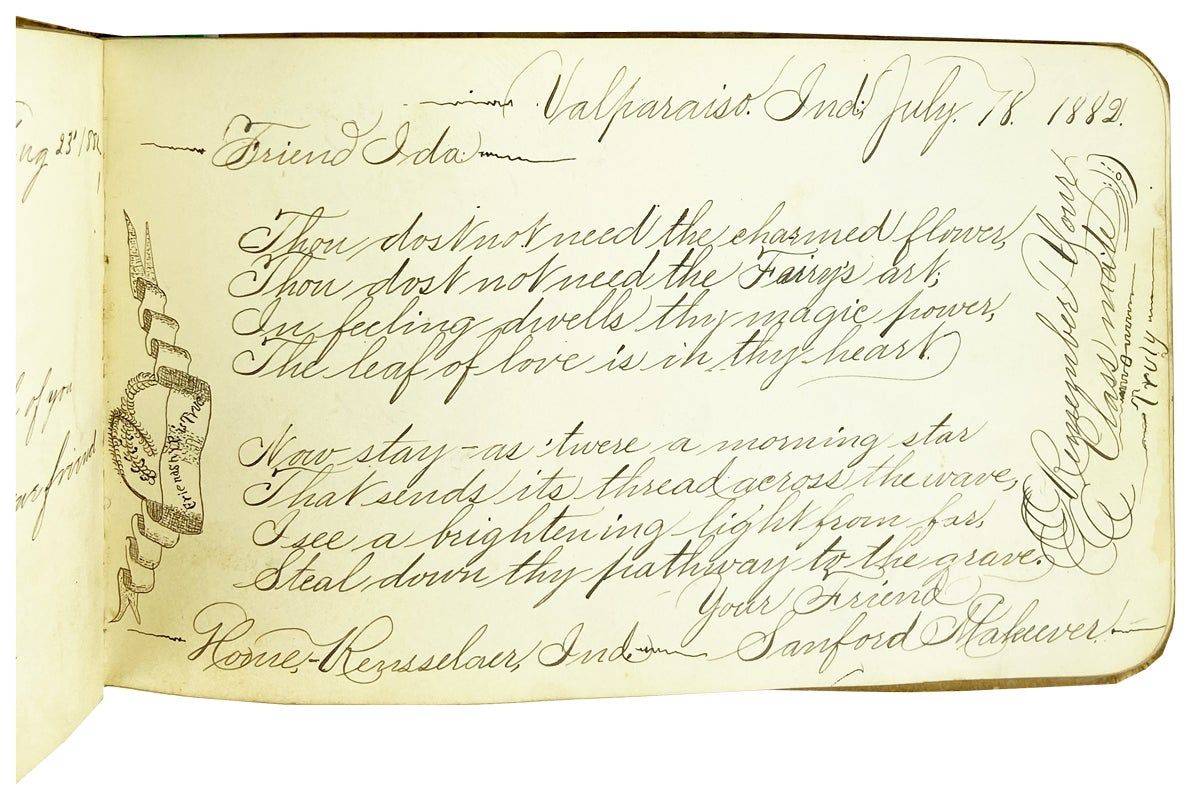 Aug 23d
Valparaiso. Ind. July. 18. 1882.
Friend Ida.
Thou dost not need the charmed flower,
Thou dost not need the Fairy's art;
In feeling dwells thy magic power,
The leaf of love is in thy heart.
Now stay - as 'twere a morning star
That sends its thread across the wave,
I see a brightening light from far,
Steal down thy pathway to the grave.
Your Friend
Sanford Makeever.
Home, - Rensselaer, Ind.
Remember Your
Class mate
Truly
Friendship True
of you
friend